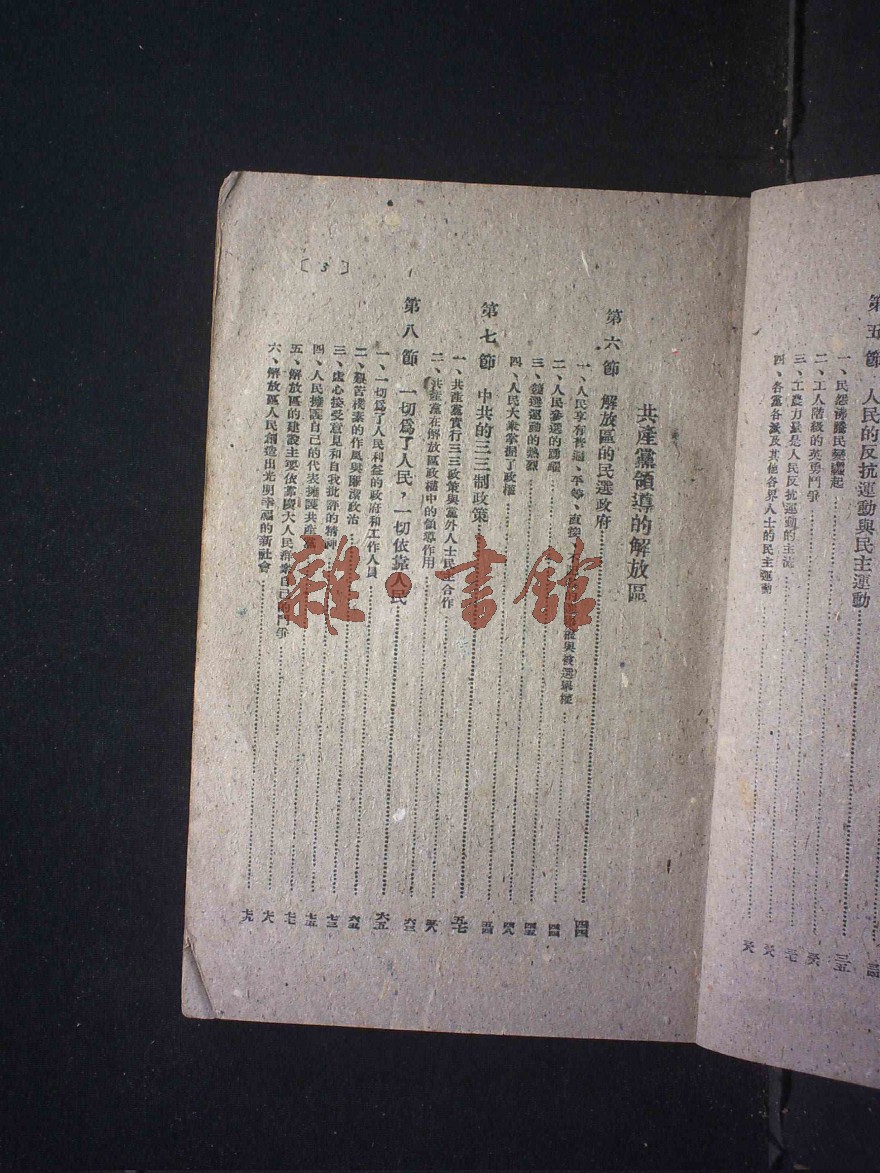 第五節 人民的反抗運動與民主運動
一、民怨沸騰民變蠭起
二、工人階級的英勇鬥爭
三、工農力量是人民反抗運動的主流
四、各黨各派及其他各界人士的民主運動
共產黨領導的解放區
第六節 解放區的民選政府 四四
一、人民享有普遍、平等、直接 與被選舉權 四四
二、人民參選的踴躍 四五
三、競選運動的熱烈 四八
四、人民大衆掌握了政權
第七節 中共的三三制政策 五七
一、共產黨實行三三政策與黨外人士民主合作
二、共產黨在解放區政權中的領導作用
第八節 一切爲了人民，一切依靠人民 六五
一、一切爲了人民利益的政府和工作人員 六五
二、艱苦樸素的作風與廉潔政治 七三
三、虛心接受意見和自我批評的精神 七五
四、人民擁護自己的代表擁護共產黨
五、解放區的建設主要依靠廣大人民群衆自己的鬥爭
六、解放區人民創造出光明幸福的新社會
〔3〕
雜·書館